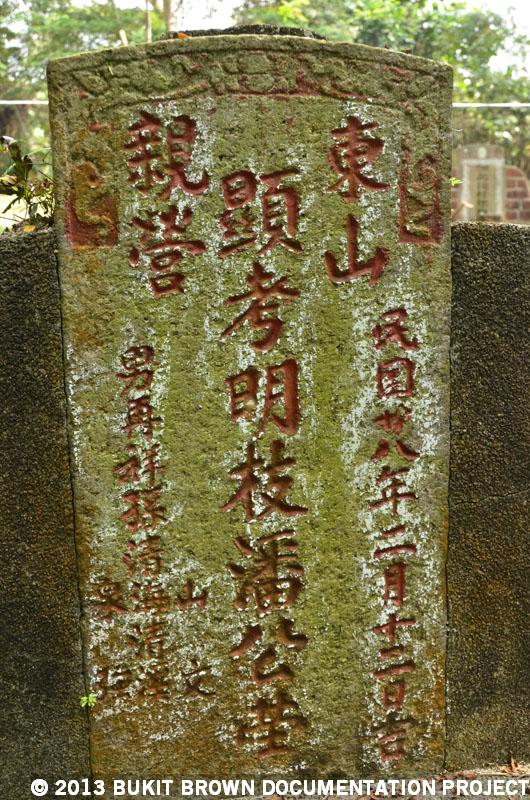 東山
民國廿八年二月十二日吉
顯考明枝潘公塋
親營
男再祥孫清海清
山文
泉
© 2013 BUKIT BROWN DOCUMENTATION PROJECT